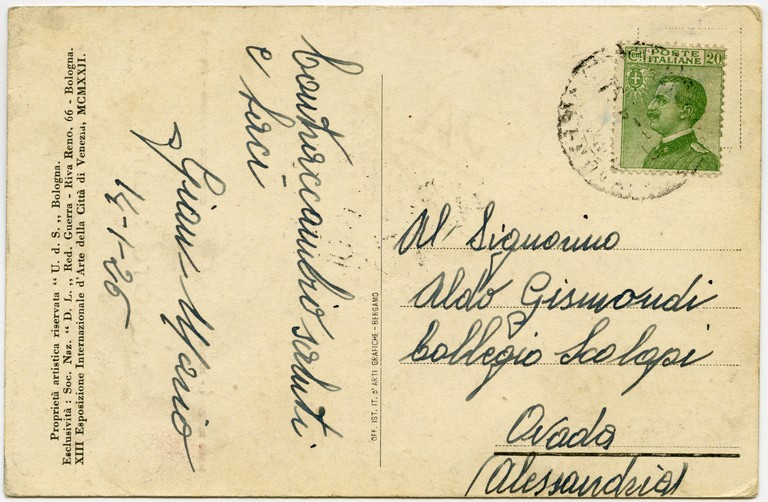 Proprietà artistica riservata " U. d. S. „ Bologna.
Esclusività : Soc. Naz. " D. L. „ Red. Guerra - Riva Reno, 66 - Bologna.
XIII Esposizione Internazionale d'Arte della Città di Venezia, MCMXXII.
Contraccambio saluti
e baci
Mario
14-1-26
OFF. IST. IT. D'ARTI GRAFICHE - BERGAMO
Cent. POSTE 20
ITALIANE
Al Signorino
Aldo Gismondi
Collegio Scolopi
Ovada
(Alessandria)